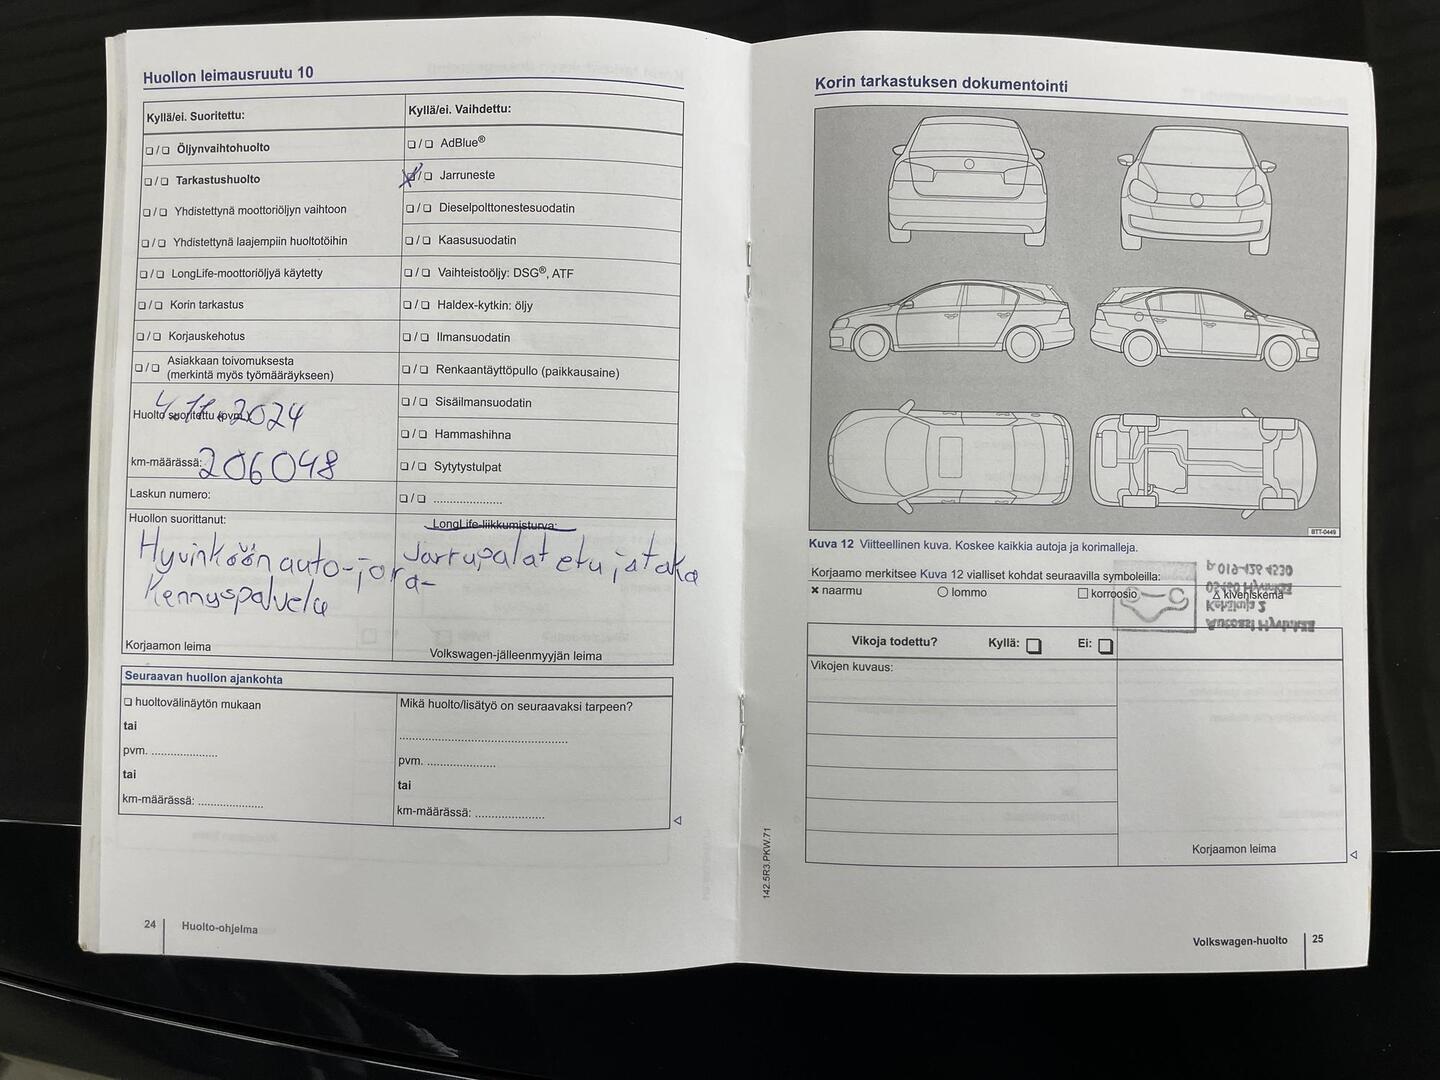 Huollon leimausruutu 10
Kyllä/ei. Suoritettu:
Kyllä/ei. Vaihdettu:
❑ / ❑ Öljynvaihtohuolto
❑ / ❑ AdBlue®
❑ / ❑ Tarkastushuolto
❑ / ❑ Jarruneste
❑ / ❑ Yhdistettynä moottoriöljyn vaihtoon
❑ / ❑ Dieselpolttonestesuodatin
❑ / ❑ Yhdistettynä laajempiin huoltotöihin
❑ / ❑ Kaasusuodatin
❑ / ❑ LongLife-moottoriöljyä käytetty
❑ / ❑ Vaihteistoöljy: DSG®, ATF
❑ / ❑ Korin tarkastus
❑ / ❑ Haldex-kytkin: öljy
❑ / ❑ Korjauskehotus
❑ / ❑ Ilmansuodatin
❑ / ❑ Asiakkaan toivomuksesta
(merkintä myös työmääräykseen)
❑ / ❑ Renkaantäyttöpullo (paikkausaine)
❑ / ❑ Sisäilmansuodatin
Huolto suoritettu (pvm.):
4.11.2024
❑ / ❑ Hammashihna
km-määrässä: 206048
❑ / ❑ Sytytystulpat
Laskun numero:
❑ / ❑ ......................
Huollon suorittanut:
LongLife-liikkumisturva:
Hyvinkään auto- ja ra-
Kennuspalvelu
Jarrupalat etu ja taka
Korjaamon leima
Volkswagen-jälleenmyyjän leima
Seuraavan huollon ajankohta
❑ huoltovälinäytön mukaan
tai
pvm. .....................
tai
km-määrässä: .....................
Mikä huolto/lisätyö on seuraavaksi tarpeen?
.....................................................
pvm. .....................
tai
km-määrässä: .....................
24 Huolto-ohjelma
Korin tarkastuksen dokumentointi
BTT-0449
Kuva 12 Viitteellinen kuva. Koskee kaikkia autoja ja korimalleja.
Korjaamo merkitsee Kuva 12 vialliset kohdat seuraavilla symboleilla:
✖ naarmu
○ lommo
□ korroosio
△ kiveniskemä
Vikoja todettu?
Kyllä: ❑
Ei: ❑
Vikojen kuvaus:
Korjaamon leima
142.5R3.PKW.71
Volkswagen-huolto 25